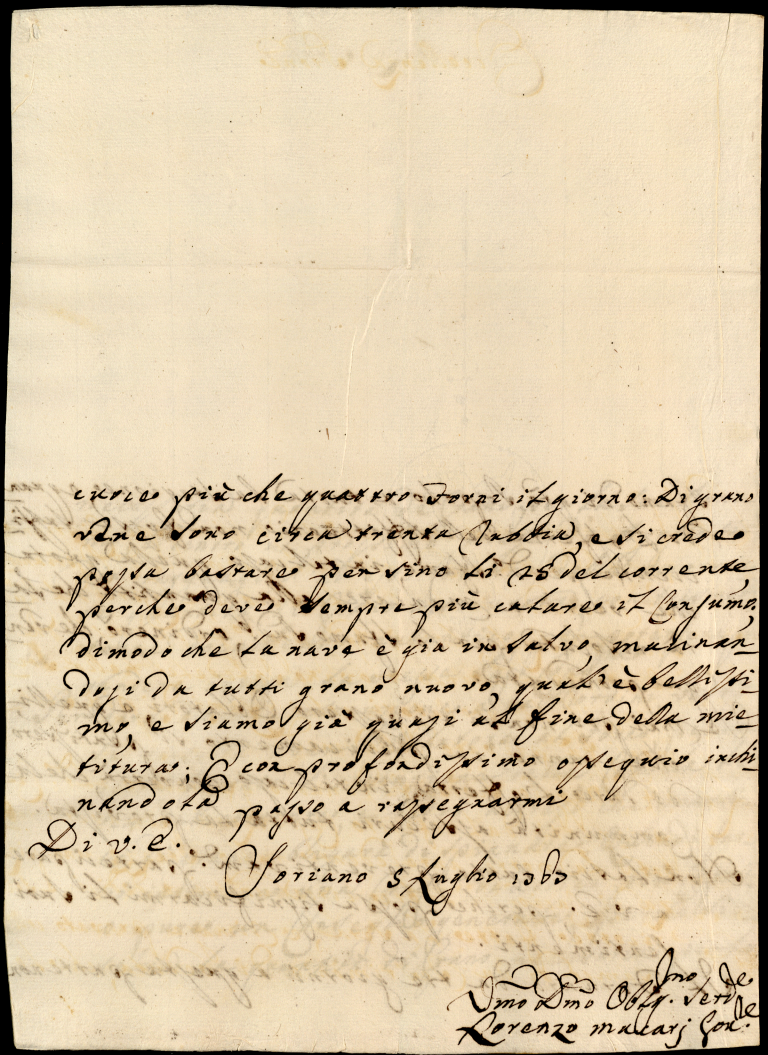 cuoce più che quattro Forni il giorno: Di grano
vene sono circa trenta Rubbia, e si crede
possa bastare per sino li 25 del corrente,
perche deve sempre più calare il Consumo,
dimodoche la nave è gia in salvo, macinan-
dosi da tutti grano nuovo, qual'è bellissi-
mo, e siamo già quasi al fine della mie-
titura; E con profondissimo ossequio inchi-
nandola passo a rassegnarmi
Di V. E.
Soriano 5 Luglio 1763
Umo Dmo Obbg.mo Serv.e
Lorenzo Macarj Gov.re